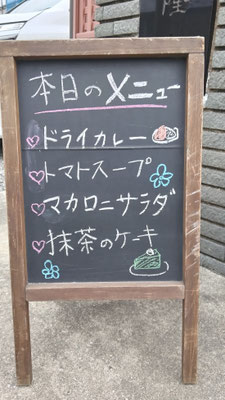 本日のメニュー
ドライカレー
トマトスープ
マカロニサラダ
抹茶のケーキ